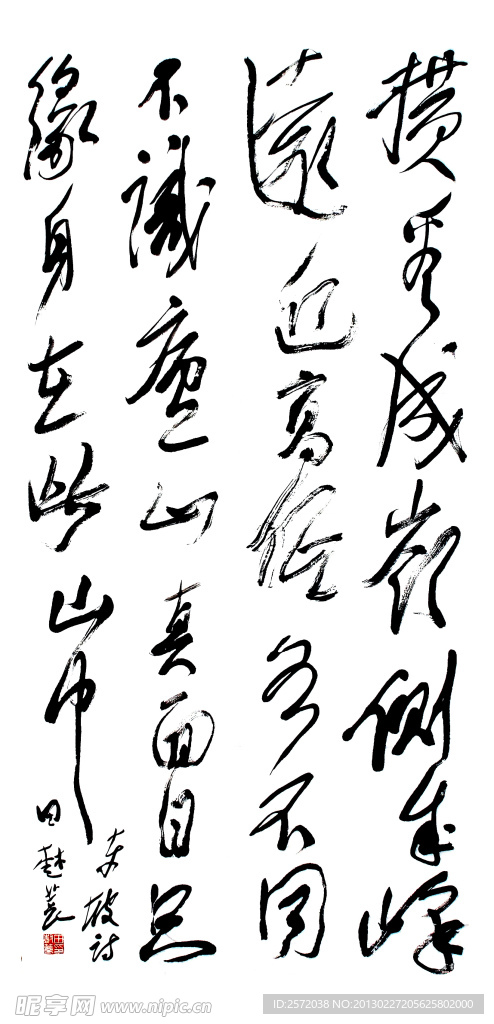 橫看成嶺側成峰
遠近高低各不同
不識廬山真面目只
緣身在此山中
東坡詩
田樹萇
昵享网 www.nipic.cn
ID:2572038 NO:20130227205625802000